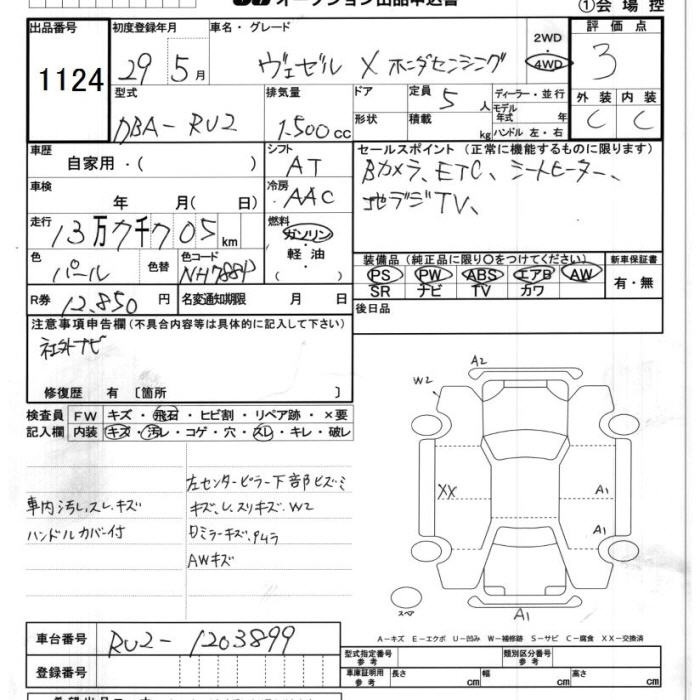 オークション出品申込書
①会場控
出品番号 初度登録年月 車名・グレード 評価点
1124 29 5月 ヴェゼル X ホンダセンシング 2WD 4WD 3
型式 排気量 ドア 定員 5人 ディーラー・並行 外装 内装
DBA-RU2 1.500cc 形状 積載 kg モデル年式 年 ハンドル 左・右 C C
車歴 シフト セールスポイント (正常に機能するものに限ります)
自家用・( ) AT Bカメラ、ETC、シートヒーター、
車検 冷房 地デジTV、
年 月( 日) AAC
走行 燃料
13万7千705km ガソリン
色 色替 色コード 軽油 装備品 (純正品に限り○をつけてください) 新車保証書
パール NH788P ( ) PS PW ABS エアB AW 有・無
SR ナビ TV カワ
R券 12,850円 名変通知期限 月 日 後日品
注意事項申告欄 (不具合内容等は具体的に記入して下さい)
社外ナビ
修復歴 有 〔箇所 〕
検査員 FW キズ・飛石・ヒビ割・リペア跡・×要
記入欄 内装 キズ・汚レ・コゲ・穴・スレ・キレ・破レ
左センターピラー下部ヒズミ
車内汚し、スレ、キズ キズ、し、スリキズ、W2
ハンドルカバー付
AWキズ
A2
W2
XX A1
A1
スペア A1
A-キズ E-エクボ U-凹み W-補修跡 S-サビ C-腐食 XX-交換済
車台番号 RU2-1203899
型式指定番号 参考 類別区分番号 参考
登録番号 車庫証明用 参考 長さ cm 幅 cm 高さ cm